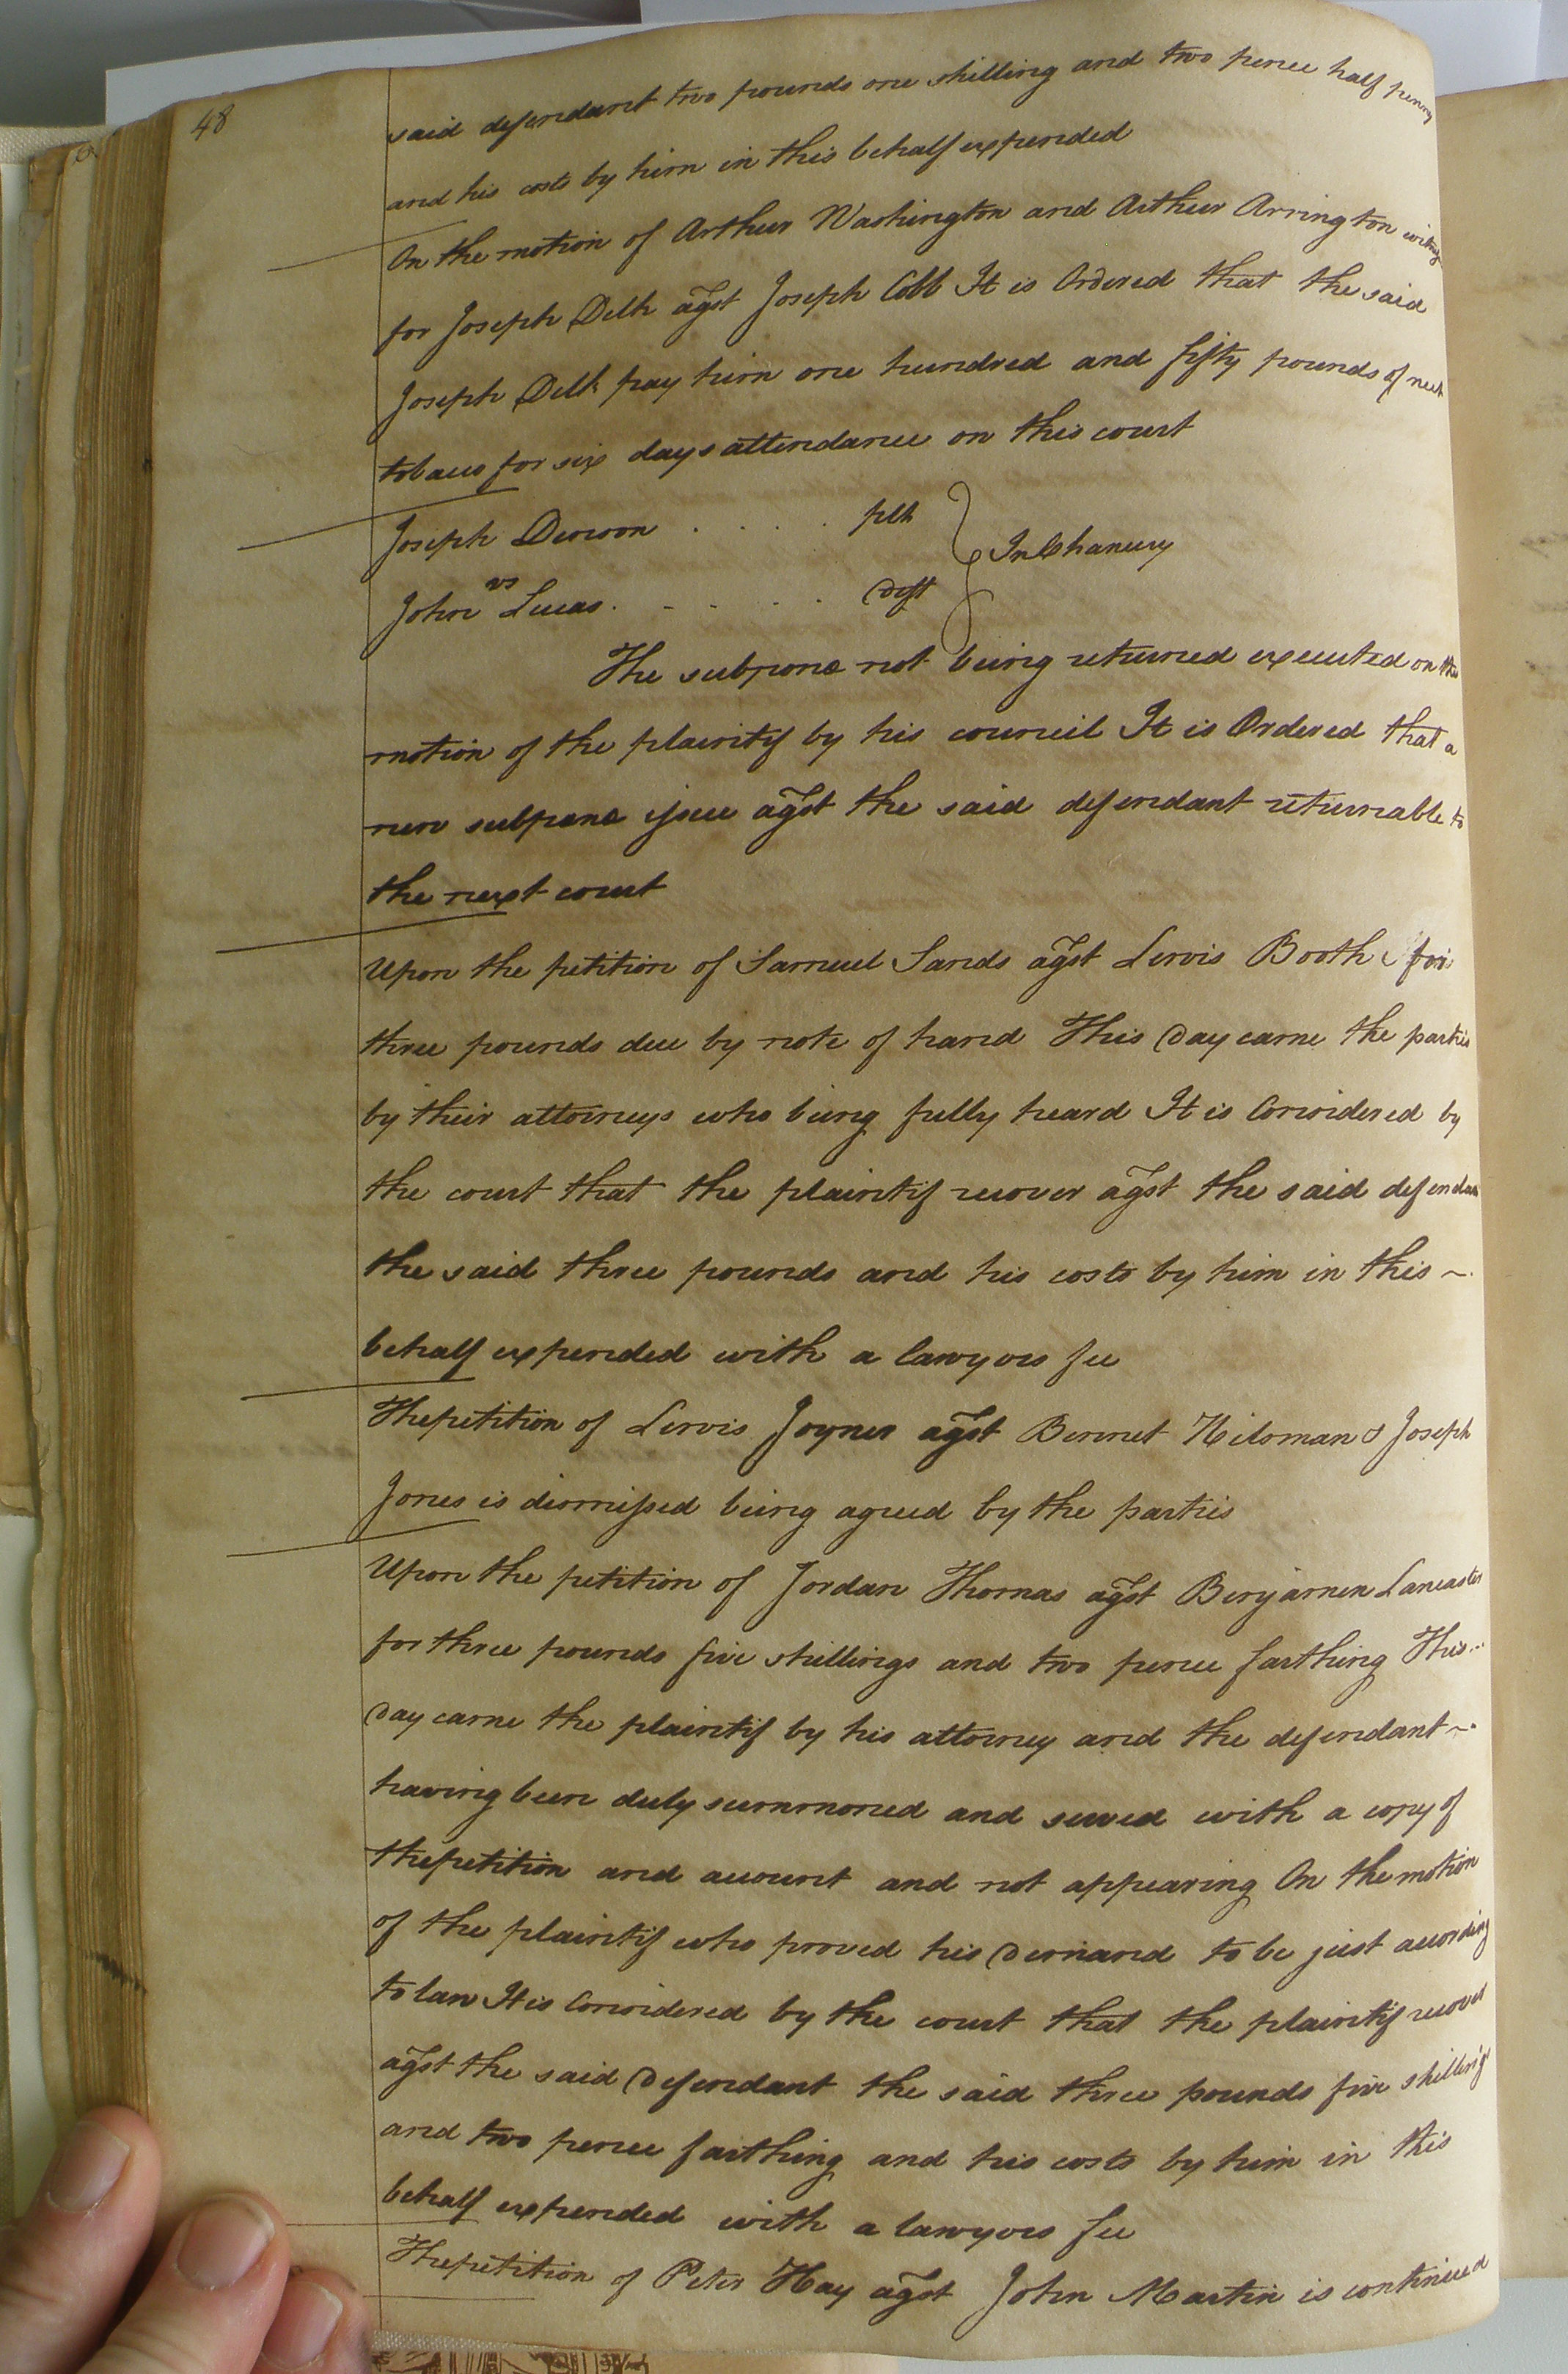 48
said defendant two pounds one shilling and two pence half penny
and his costs by him in this behalf expended
On the motion of Arthur Washington and Arthur Arrington
for Joseph Delk agst Joseph Cobb It is Ordered that the said
Joseph Delk pay him one hundred and fifty pounds of nett
tobacco for six days attendance on this court
Joseph Denson . . . . plt
vs In Chancery
John Lucas . . . . . Deft
The subpona not being returned executed on the
motion of the plaintif by his council It is Ordered that a
new subpena issue agst the said defendant returnable to
the next court
Upon the petition of Samuel Sands agst Lewis Booth for
three pounds due by note of hand This Day came the parties
by their attorneys who being fully heard It is Considered by
the court that the plaintif recover agst the said defendant
the said three pounds and his costs by him in this ~
behalf expended with a lawyers fee
The petition of Lewis Joyner agst Bennet Hilsman & Joseph
Jones is dismissed being agreed by the parties
Upon the petition of Jordan Thomas agst Benjamen Lancaster
for three pounds five shillings and two pence farthing This
Day came the plaintif by his attorney and the defendant ~
having been duly summoned and served with a copy of
the petition and account and not appearing On the motion
of the plaintif who proved his Demand to be just according
to law It is Considered by the court that the plaintif recover
agst the said Defendant the said three pounds five shillings
and two pence farthing and his costs by him in this
behalf expended with a lawyers fee
The petition of Peter Hay agst John Martin is continued